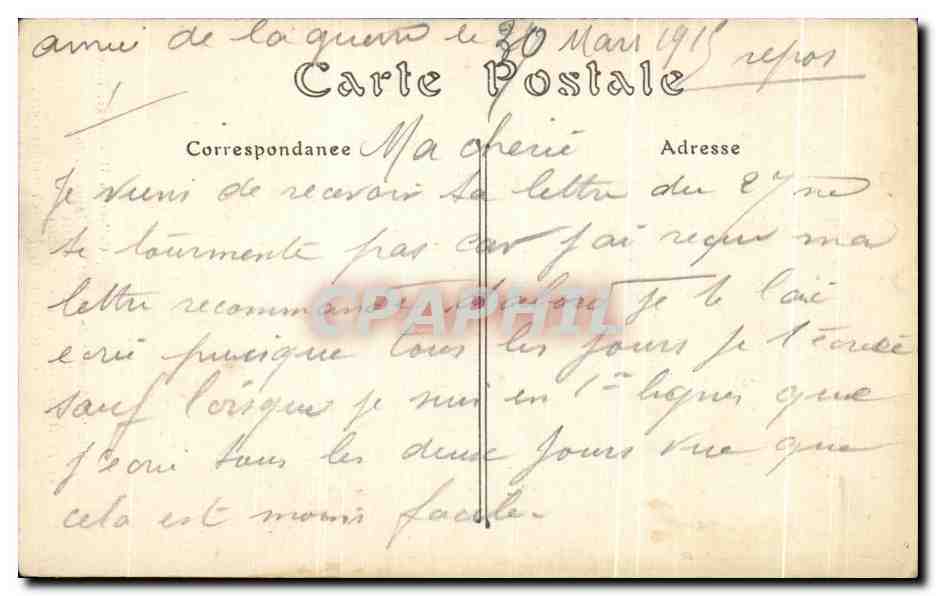 année de la guerre le 30 Mars 1915 repos
Carte Postale
1
Correspondance Ma cherie Adresse
Je viens de recevoir ta lettre du 27 ne
te tourmente pas car j'ai reçu ma
lettre recommandée d'abord je te l'ai
CPAPHIL
écrie puisque tous les jours je t'écris
sauf lorsque je suis en 1re lignes que
j'écrie tous les deux jours vue que
cela est moins facile.